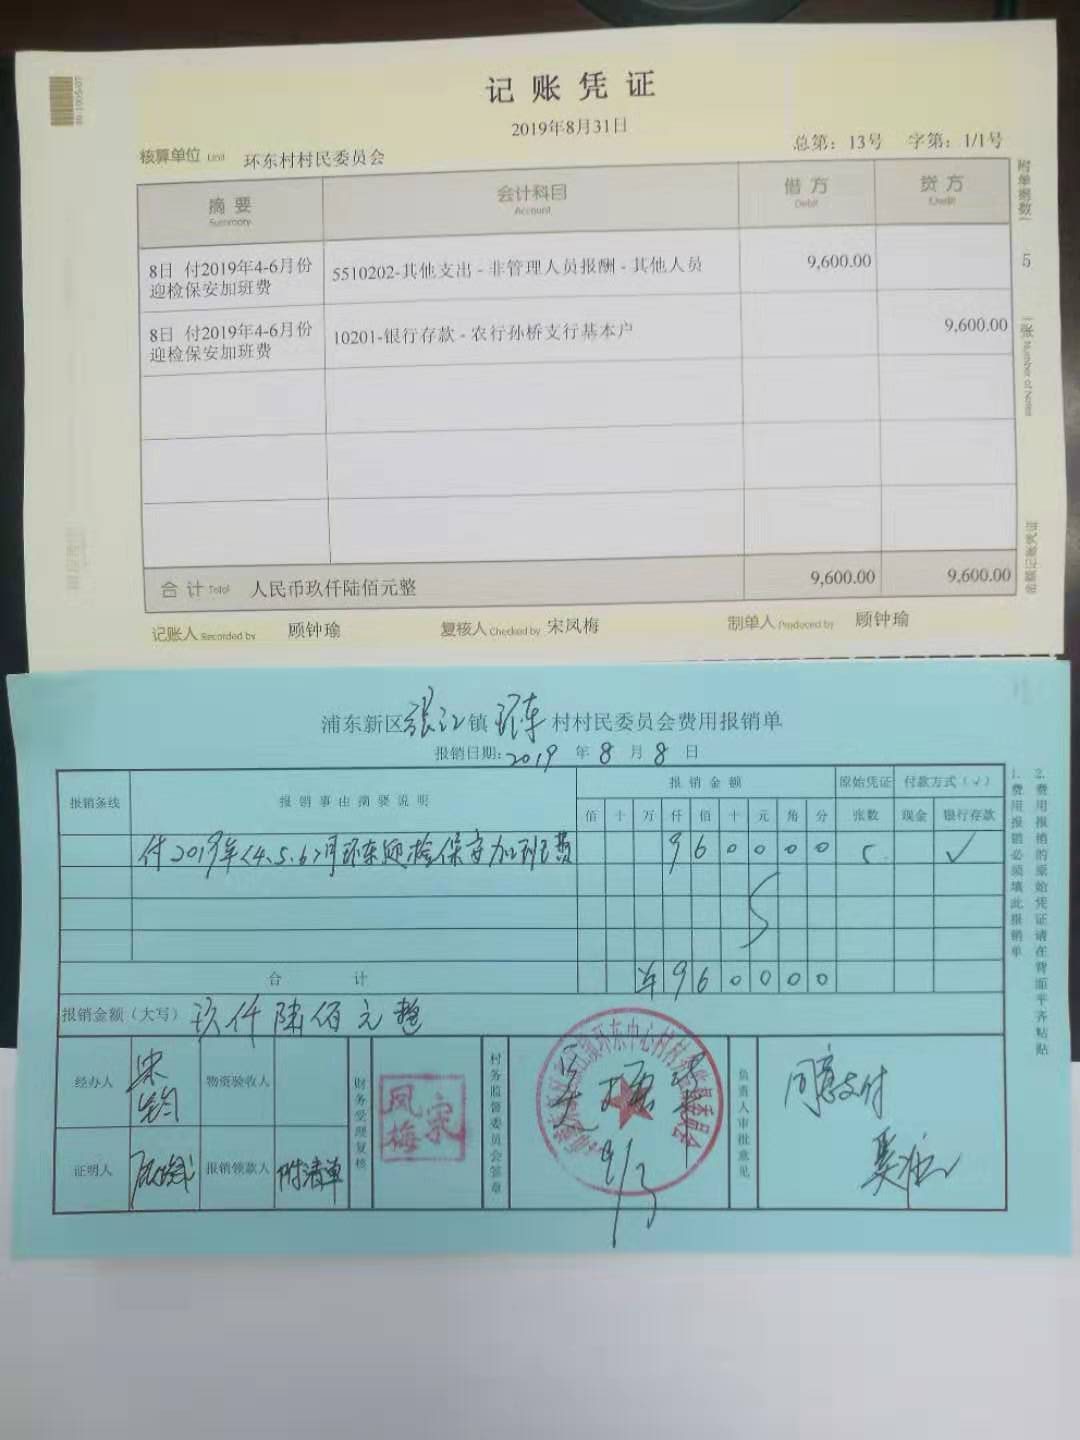 记账凭证
2019年8月31日
核算单位 Unit 环东村村民委员会 总第：13号 字第：1/1号
摘要 会计科目 借方 贷方
Summary Account Debit Credit
8日 付2019年4-6月份
迎检保安加班费
5510202-其他支出 - 非管理人员报酬 - 其他人员 9,600.00
8日 付2019年4-6月份
迎检保安加班费
10201-银行存款 - 农行孙桥支行基本户 9,600.00
合计 Total 人民币玖仟陆佰元整 9,600.00 9,600.00
记账人 Recorded by 顾钟瑜 复核人 Checked by 宋凤梅 制单人 Produced by 顾钟瑜
附单据数 5 张
浦东新区张江镇环东村村民委员会费用报销单
报销日期：2019年8月8日
报销条线 报销事由摘要说明 报销金额 原始凭证 付款方式（√）
佰 十 万 仟 佰 十 元 角 分 张数 现金 银行存款
付2019年<4.5.6>月环东迎检保安加班费 9 6 0 0 0 0 5 √
合计 ¥ 9 6 0 0 0 0
报销金额（大写） 玖仟陆佰元整
经办人 物资验收人 财务受理复核 村务监督委员会签章 负责人审批意见
宋凤梅
同意支付
证明人 报销领款人 附清单
1.费用报销必须填此报销单
2.费用报销的原始凭证请在背面平齐粘贴